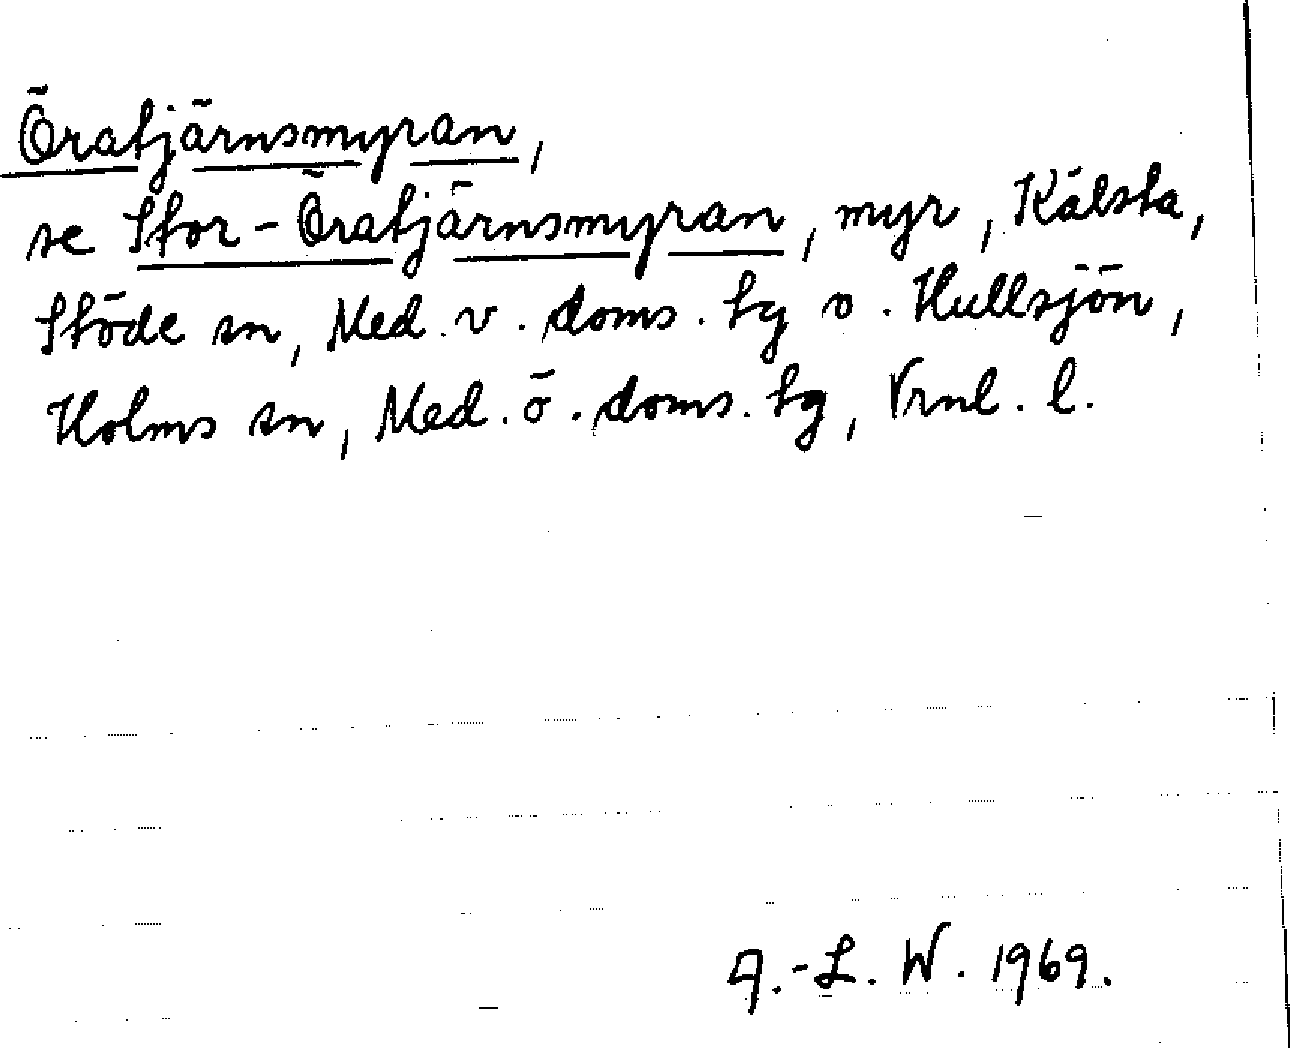 Öratjärnsmyran,
se Stor-Öratjärnsmyran, myr, Kälsta,
Stöde sn, Med. v. doms. tg o. Hullsjön,
Holms sn, Med. ö. doms. tg, Vrnl. l.
A.-L. W. 1969.